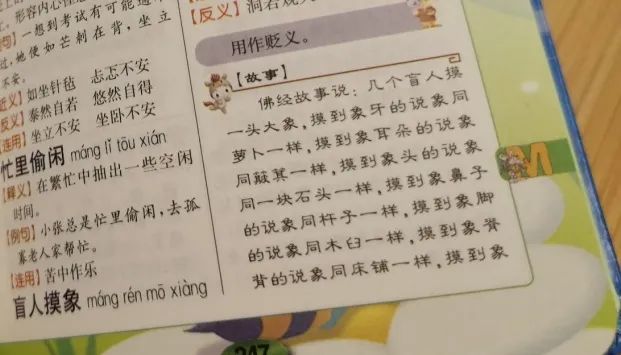 形容内心
例句】一想到考试有可能通
过，她便如芒刺在背，坐立
不安。
近义】如坐针毡 忐忑不安
反义】泰然自若 悠然自得
【连用】坐立不安 坐卧不安
忙里偷闲 máng lǐ tōu xián
【释义】在繁忙中抽出一些空闲
时间。
【例句】小张总是忙里偷闲，去孤
寡老人家帮忙。
【连用】苦中作乐
盲人摸象 máng rén mō xiàng
【反义】洞若观
用作贬义。
【故事】
佛经故事说：几个盲人摸
一头大象，摸到象牙的说象同
萝卜一样，摸到象耳朵的说象
同簸箕一样，摸到象头的说象
同一块石头一样，摸到象鼻子
的说象同杵子一样，摸到象脚
的说象同木臼一样，摸到象脊
背的说象同床铺一样，摸到象
M
247